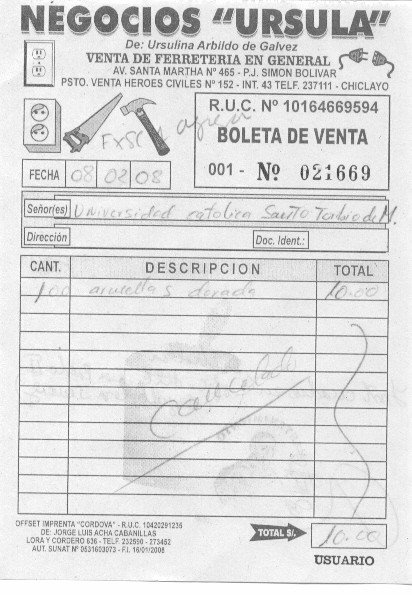 NEGOCIOS "URSULA"
De: Ursulina Arbildo de Galvez
VENTA DE FERRETERIA EN GENERAL
AV. SANTA MARTHA Nº 465 - P.J. SIMON BOLIVAR
PSTO. VENTA HEROES CIVILES Nº 152 - INT. 43 TELF. 237111 - CHICLAYO
R.U.C. Nº 10164669594
BOLETA DE VENTA
001 - Nº 021669
FECHA 08 02 08
Señor(es) Universidad catolica Santo
Dirección Doc. Ident.:
CANT. DESCRIPCION TOTAL
100 dorada 10.00
Cancelado
OFFSET IMPRENTA "CORDOVA" - R.U.C. 10420291235
DE: JORGE LUIS ACHA CABANILLAS
LORA Y CORDERO 636 - TELF. 232590 - 273452
AUT. SUNAT Nº 0531603073 - F.I. 16/01/2008
TOTAL S/. 10.00
USUARIO